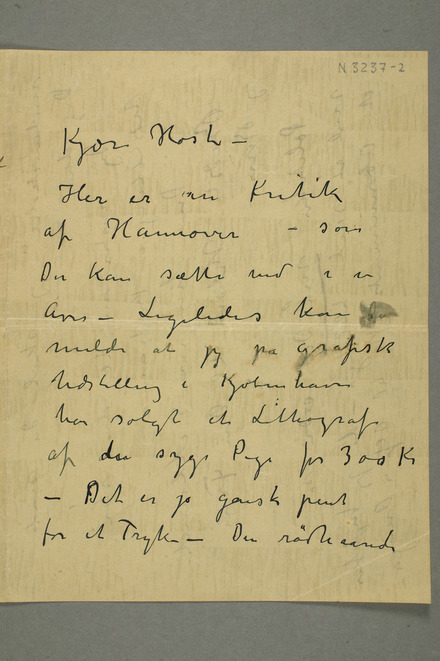 N 3237-2
Kjære Horst –
Her er en Kritik
af Hannover – som
Du kan sætte ind i en
Avis – Ligeledes kan Du
melde at jeg på grafisk
Udstilling i Kjøbenhavn
har solgt et Lithografi
af den syge Pige for 300 Kr
– Det er jo ganske pent
for et Tryk – Den rødhaarede